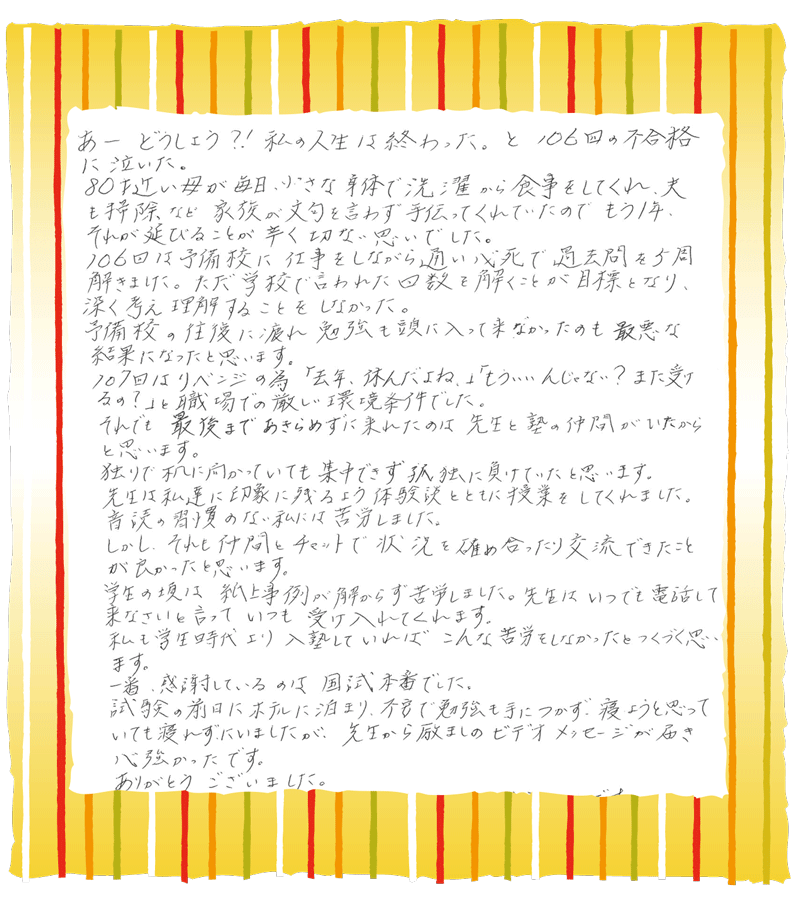 あー どうしょう?! 私の人生は終わった。と 106回の不合格
に泣いた。
80才近い母が毎日、小さな身体で洗濯から食事をしてくれ、夫
も掃除など 家族が文句を言わず手伝ってくれていたので もう1年、
それが延びることが辛く切ない思いでした。
106回は予備校に仕事をしながら通い必死で過去問を5周
解きました。ただ学校で言われた回数を解くことが目標となり、
深く考え理解することをしなかった。
予備校の往復に疲れ勉強も頭に入って来なかったのも最悪な
結果になったと思います。
107回はリベンジの為「去年、休んだよね、」「もういいんじゃない?また受け
るの?」と職場での厳しい環境条件でした。
それでも 最後まであきらめずに来れたのは先生と塾の仲間がいたから
と思います。
独りで机に向かっていても集中できず孤独に負けていたと思います。
先生は私達に印象に残るよう体験談とともに授業をしてくれました。
音読の習慣のない私には苦労しました。
しかし、それも仲間とチャットで状況を確め合ったり交流できたこと
が良かったと思います。
学生の頃は 紙上事例が解からず苦労しました。先生はいつでも電話して
来なさいと言って いつも 受け入れてくれます。
私も学生時代より 入塾していれば こんな苦労をしなかったとつくづく思い
ます。
一番、感謝しているのは 国試本番でした。
試験の前日にホテルに泊まり、不安で勉強も手につかず、寝ようと思って
いても寝れずにいましたが、先生から励ましのビデオメッセージが届き
心強かったです。
ありがとう ございました。